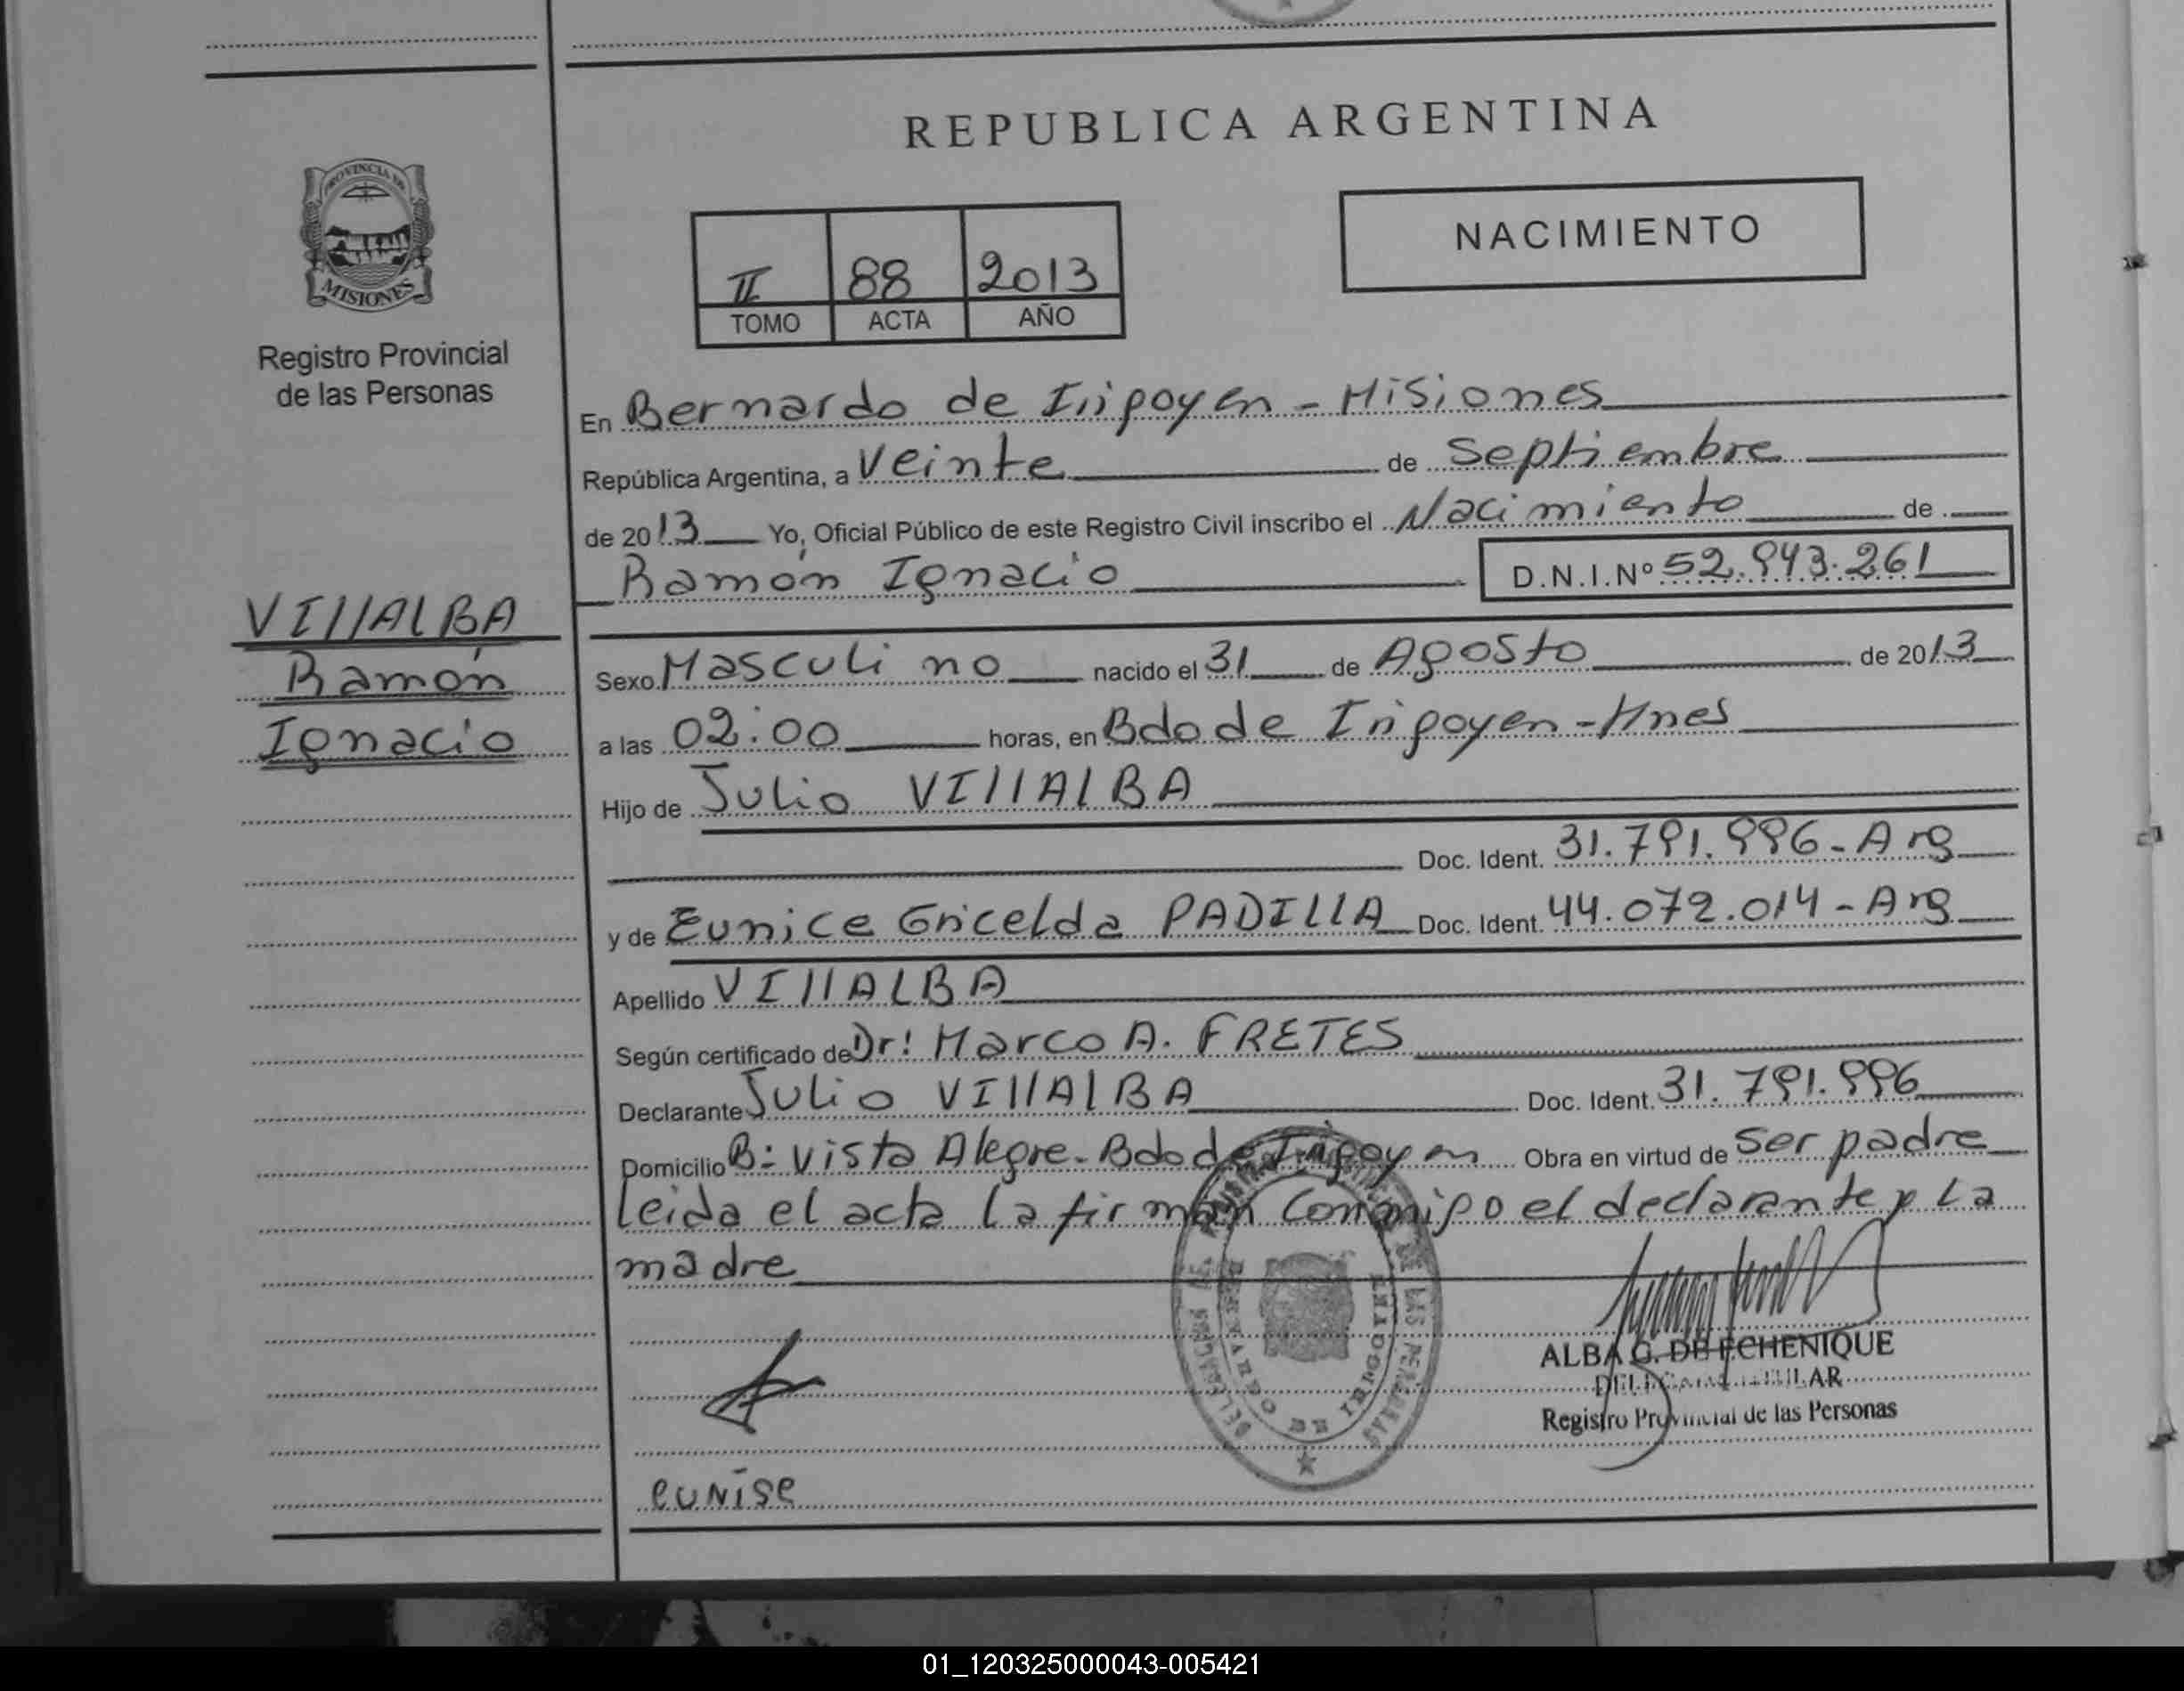 REPUBLICA ARGENTINA
PROVINCIA DE
MISIONES
Registro Provincial
de las Personas
NACIMIENTO
II 88 2013
TOMO ACTA AÑO
En Bernardo de Irigoyen - Misiones
República Argentina, a Veinte de Septiembre
de 2013 Yo, Oficial Público de este Registro Civil inscribo el Nacimiento de
Ramón Ignacio D.N.I.Nº 52.943.261
VILLALBA
Ramón
Ignacio
Sexo Masculino nacido el 31 de Agosto de 2013
a las 02:00 horas, en Bdo de Irigoyen - Mnes
Hijo de Julio VILLALBA
Doc. Ident. 31.791.996 - Arg
y de Eunice Gricelda PADILLA Doc. Ident. 44.072.014 - Arg
Apellido VILLALBA
Según certificado de Dr: Marco A. FRETES
Declarante Julio VILLALBA Doc. Ident. 31.791.996
Domicilio B: Vista Alegre - Bdo de Irigoyen Obra en virtud de ser padre
leida el acta la firman conmigo el declarante y la
madre
BERNARDO DE IRIGOYEN
DE LAS PERSONAS
ALBA G. DE ECHENIQUE
Registro Provincial de las Personas
eunise
01_120325000043-005421